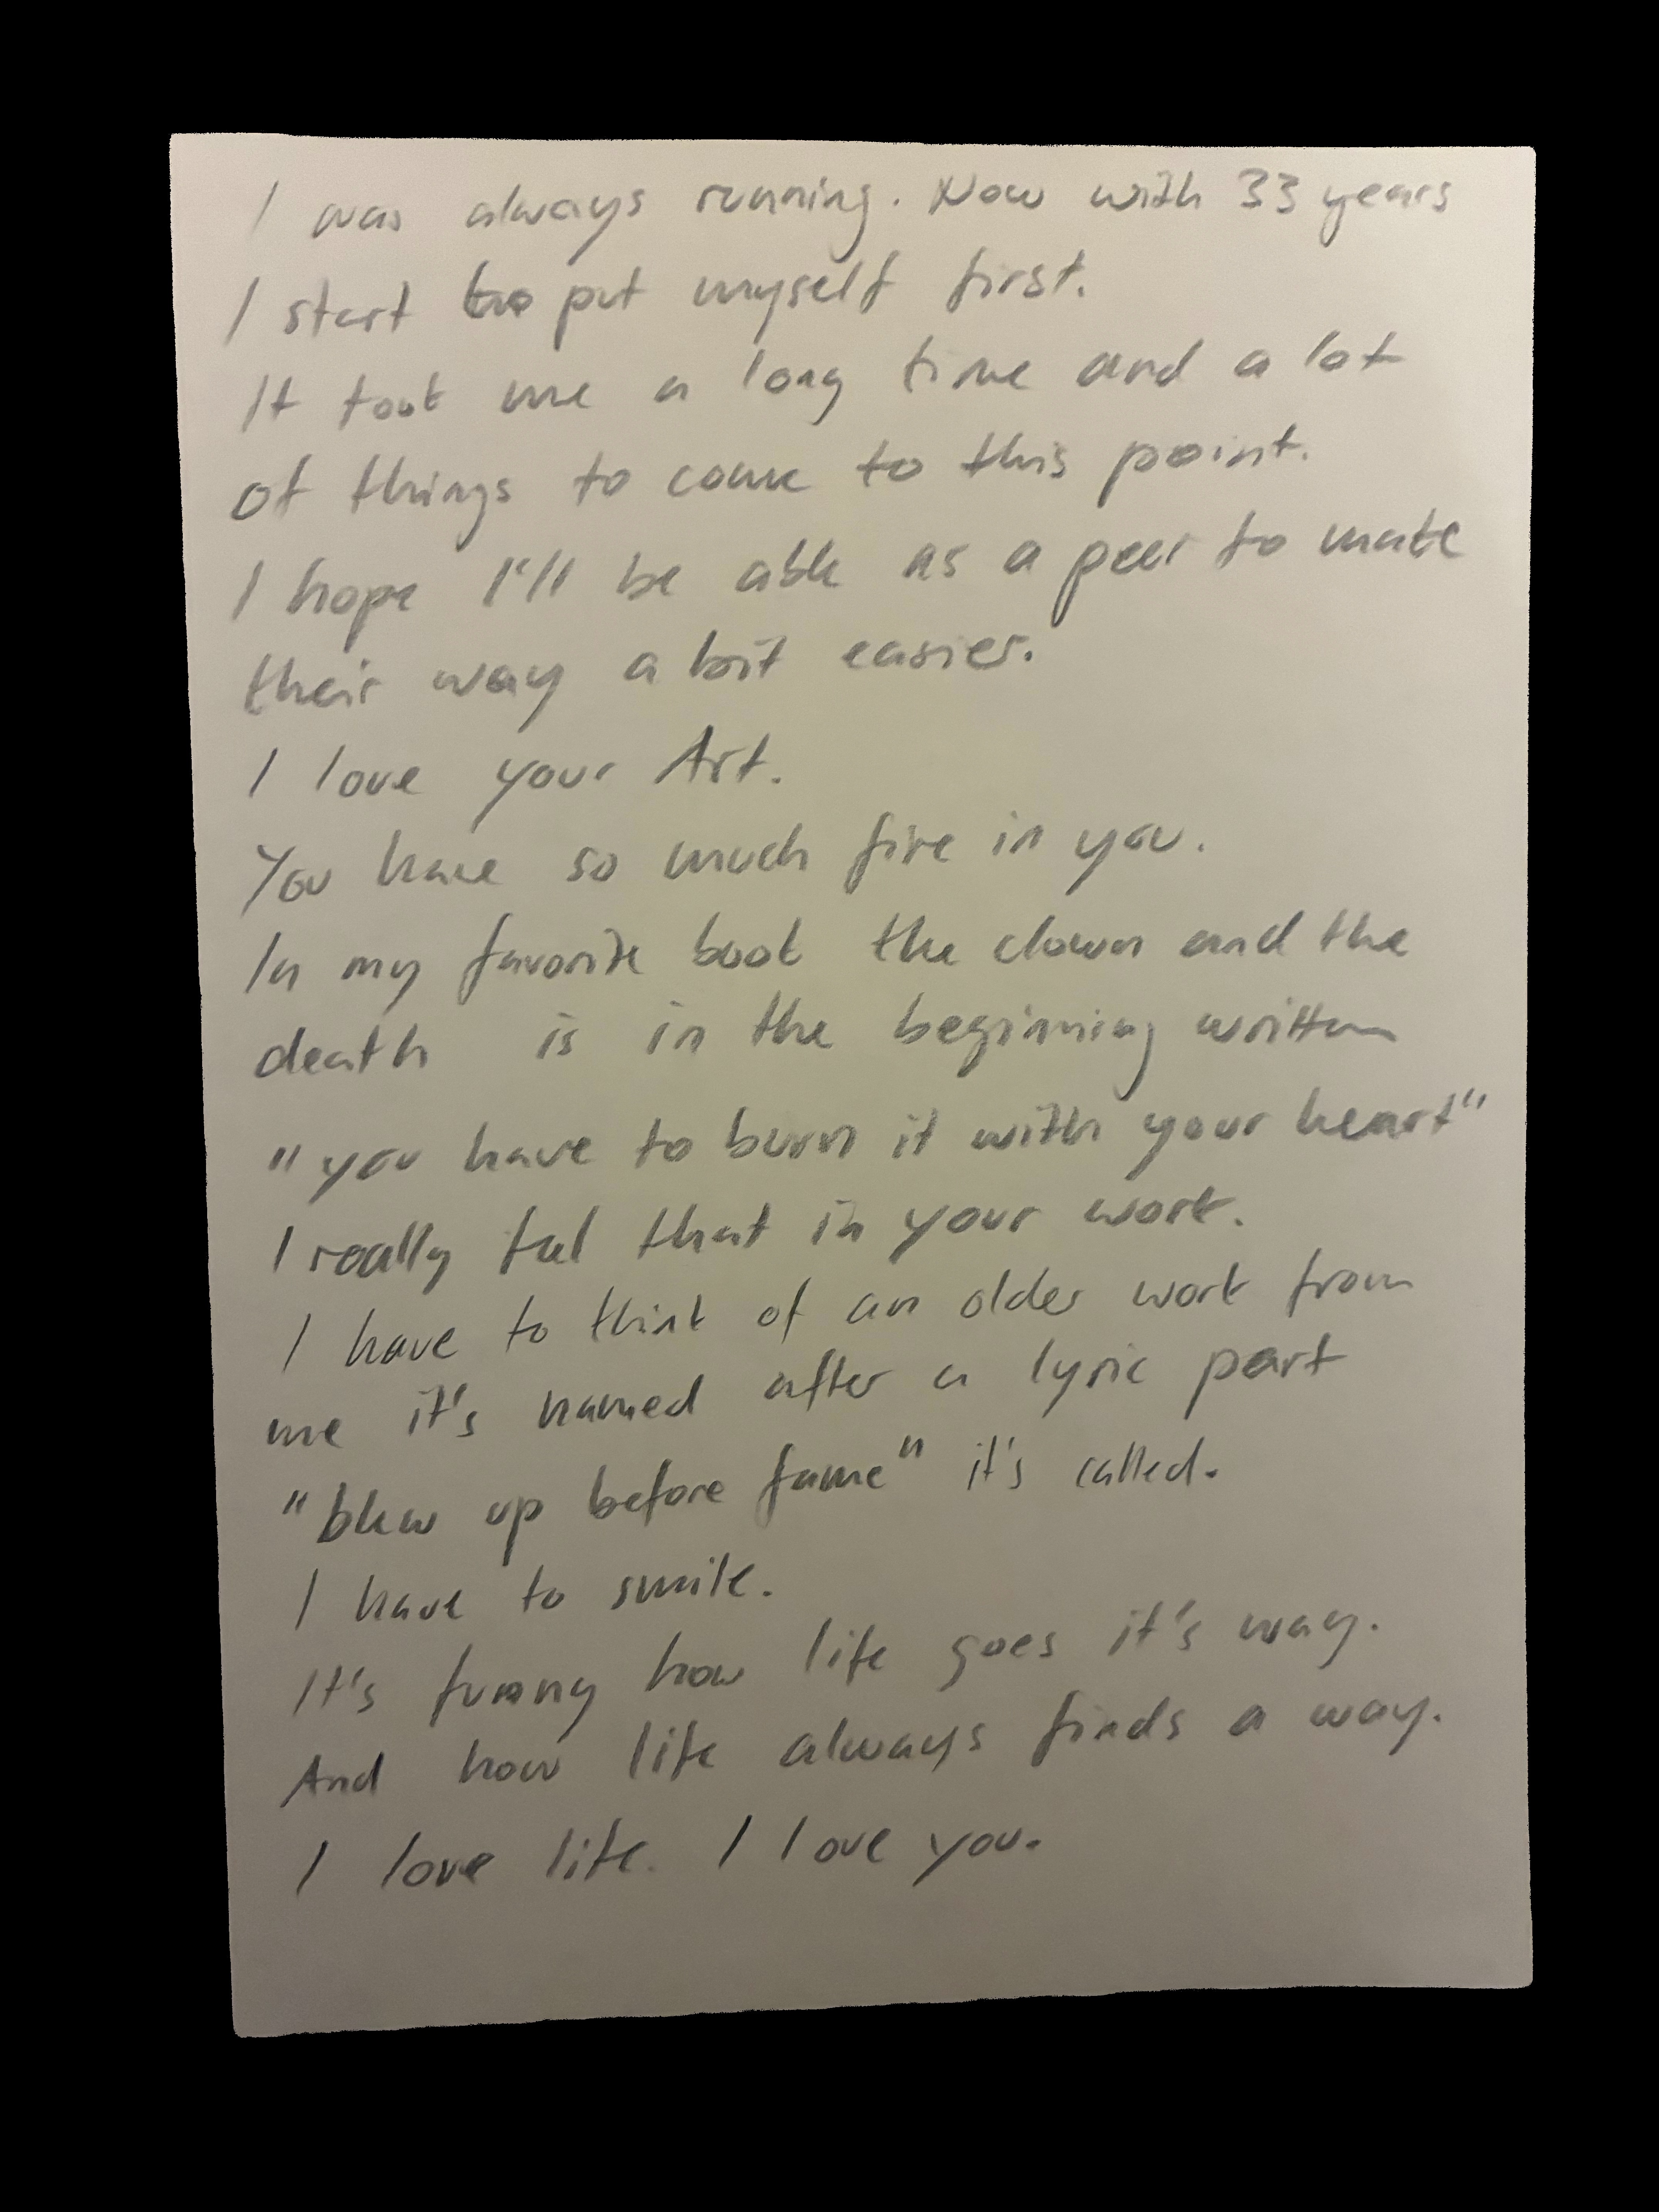 I was always running. Now with 33 years
I start to put myself first.
It took me a long time and a lot
of things to come to this point.
I hope I'll be able as a peer to make
their way a bit easier.
I love your Art.
You have so much fire in you.
In my favorite book the clown and the
death is in the beginning written
"you have to burn it with your heart"
I really feel that in your work.
I have to think of an older work from
me it's named after a lyric part
"blew up before fame" it's called.
I have to smile.
It's funny how life goes it's way.
And how life always finds a way.
I love life. I love you.